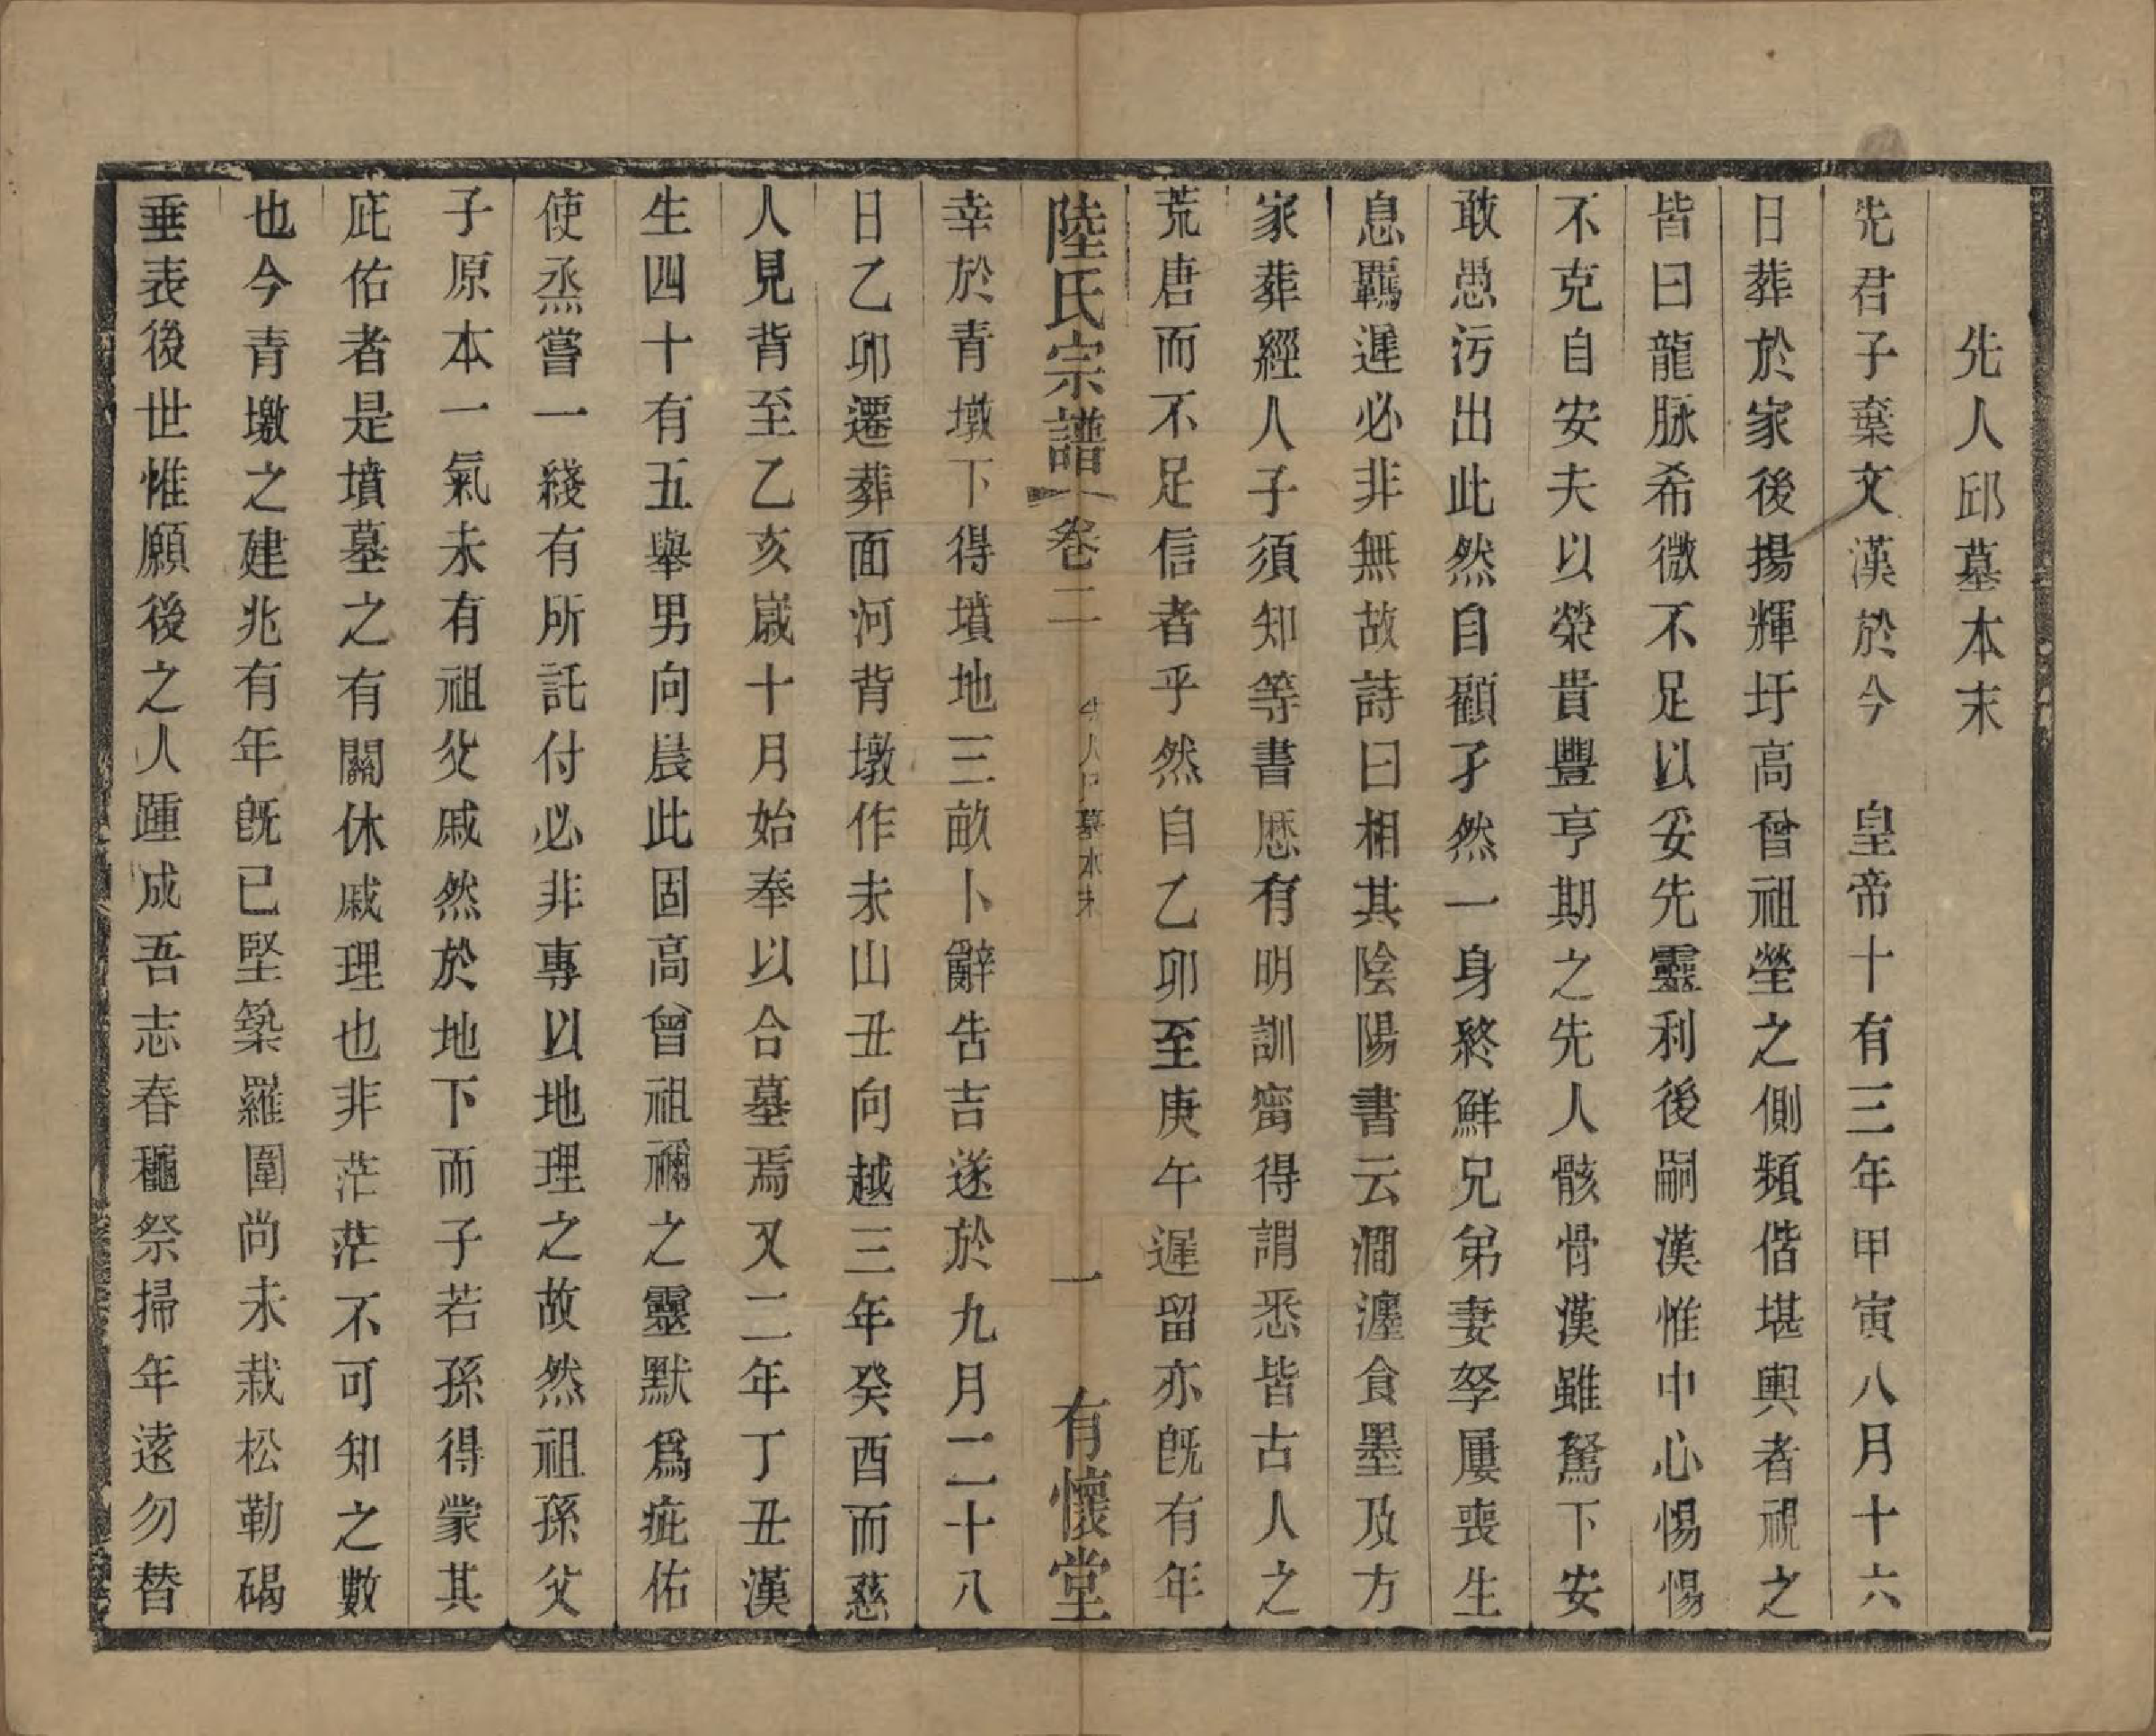 先人邱墓本末
先君子棄文漢於今　皇帝十有三年甲寅八月十六
日葬於家後揚輝圩高曾祖塋之側頻偕堪輿者視之
皆曰龍脉希微不足以妥先靈利後嗣漢惟中心惕惕
不克自安夫以榮貴豐亨期之先人骸骨漢雖駑下安
敢愚污出此然自顧孑然一身終鮮兄弟妻孥屢喪生
息羈遲必非無故詩曰相其陰陽書云澗瀍食墨及方
家葬經人子須知等書歷有明訓甯得謂悉皆古人之
荒唐而不足信者乎然自乙卯至庚午遲留亦旣有年
陸氏宗譜　卷二　先人邱墓本末　一　有懷堂
幸於青墩下得墳地三畝卜辭告吉遂於九月二十八
日乙卯遷葬面河背墩作未山丑向越三年癸酉而慈
人見背至乙亥歲十月始奉以合墓焉又二年丁丑漢
生四十有五舉男向晨此固高曾祖禰之靈默爲庇佑
使烝嘗一綫有所託付必非專以地理之故然祖孫父
子原本一氣未有祖父戚然於地下而子若孫得蒙其
庇佑者是墳墓之有關休戚理也非茫茫不可知之數
也今青墩之建兆有年旣已堅築羅圍尚未栽松勒碣
垂表後世惟願後之人踵成吾志春龝祭掃年遠勿替